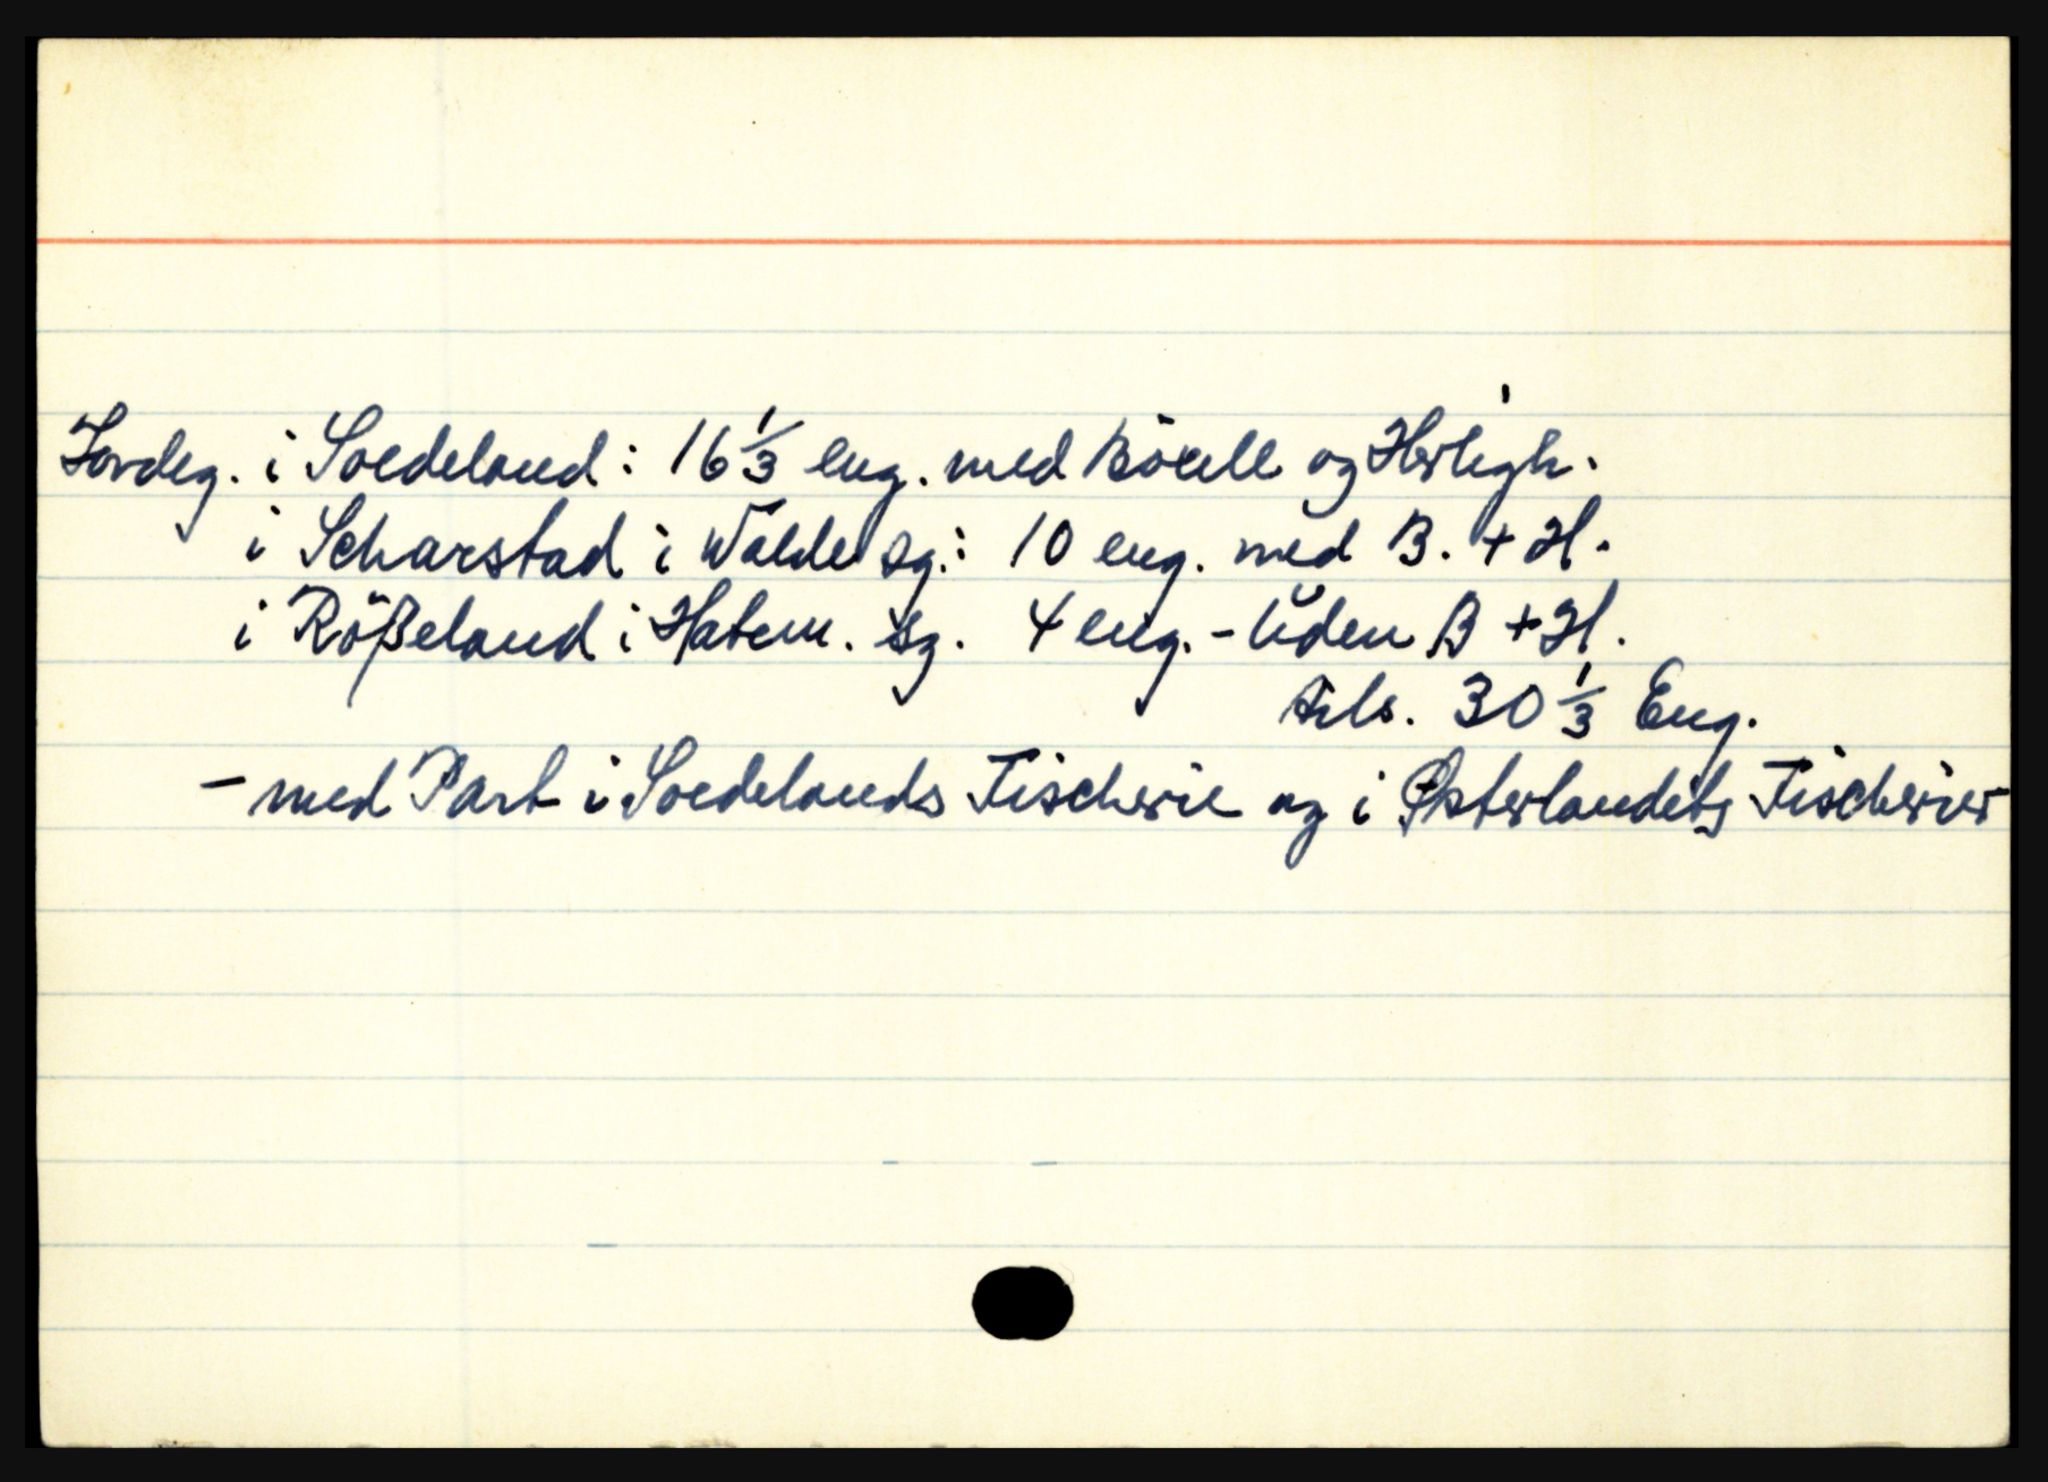 Jordeg. i Soedeland: 16 1/3 eng. med Böxell og Herligh.
i Scharstad i Walde sg.: 10 eng. med B. + H.
i Rößeland i Hatem. sg. 4 eng. - Uden B + H.
tils. 30 1/3 Eng.
- med Part i Soedelands Fischerie og i Østerlandets Fischerier